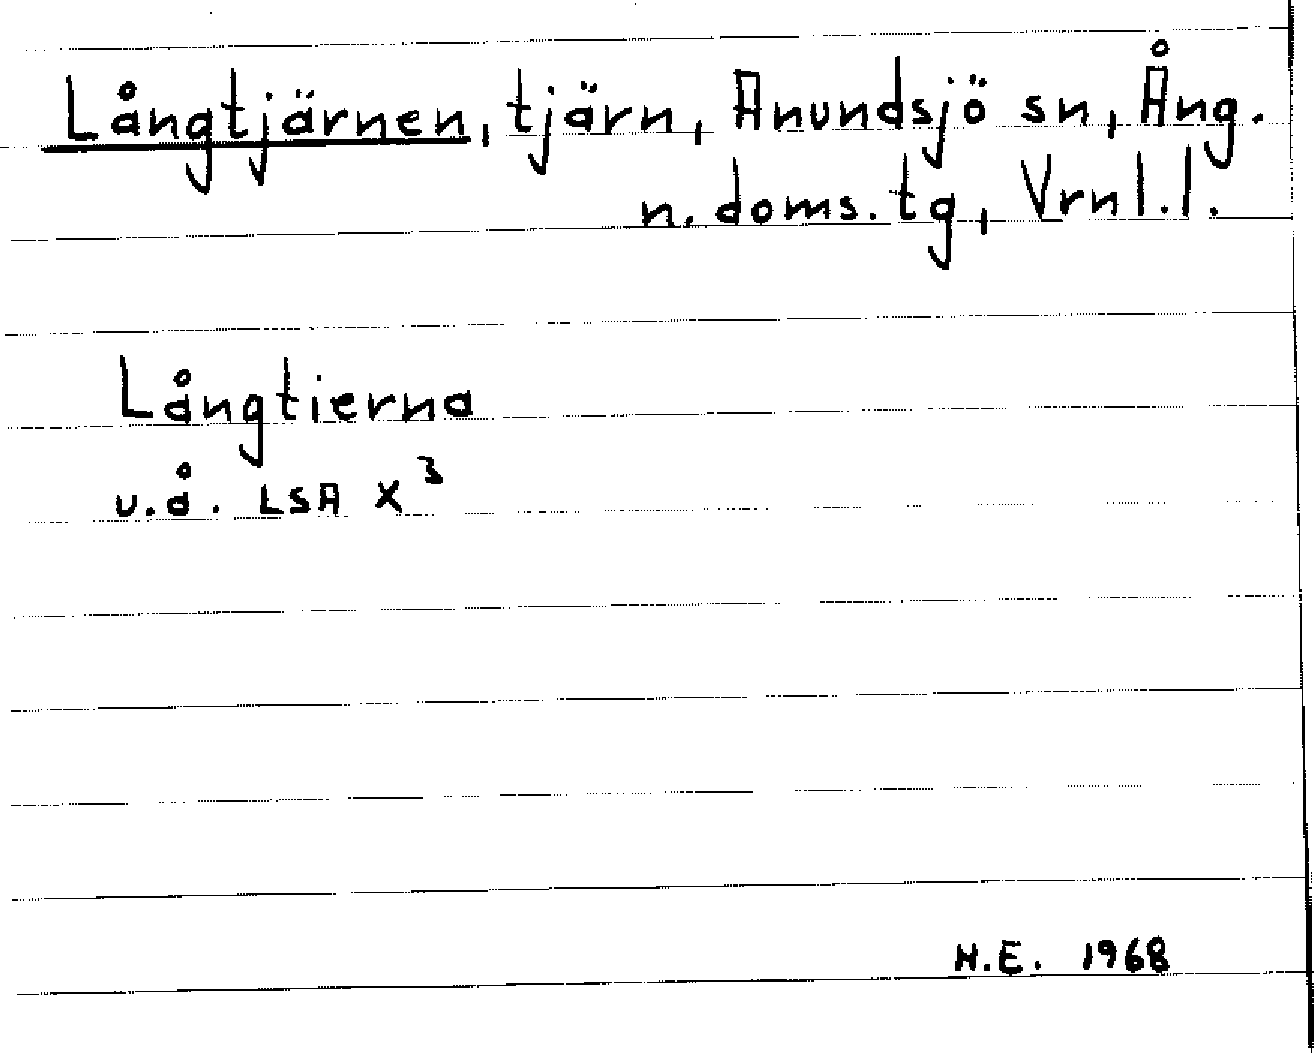 Långtjärnen, tjärn, Anundsjö sn, Ång.
n. doms. tg, Vrnl. l.
Långtierna
u.å. LSA X³
H.E. 1968